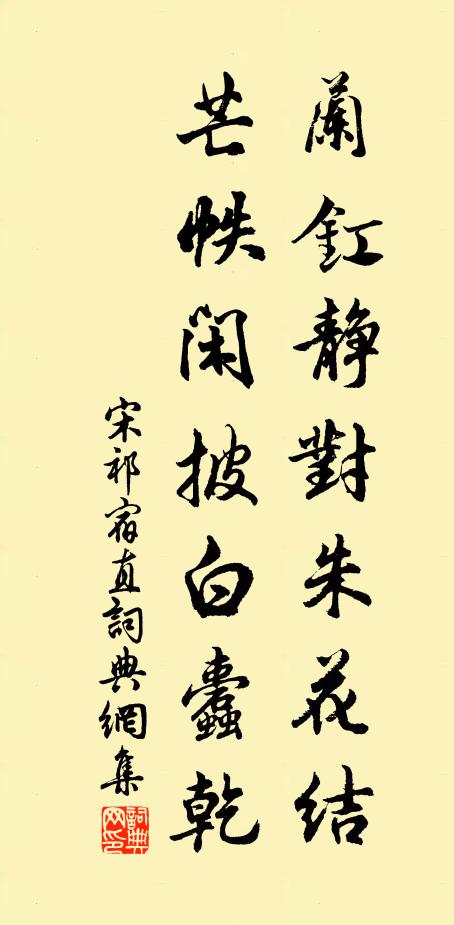 蘭釭静對朱花結
芒帙閑披白蠹乾
宋祁宿直詞典網集
詞典網印